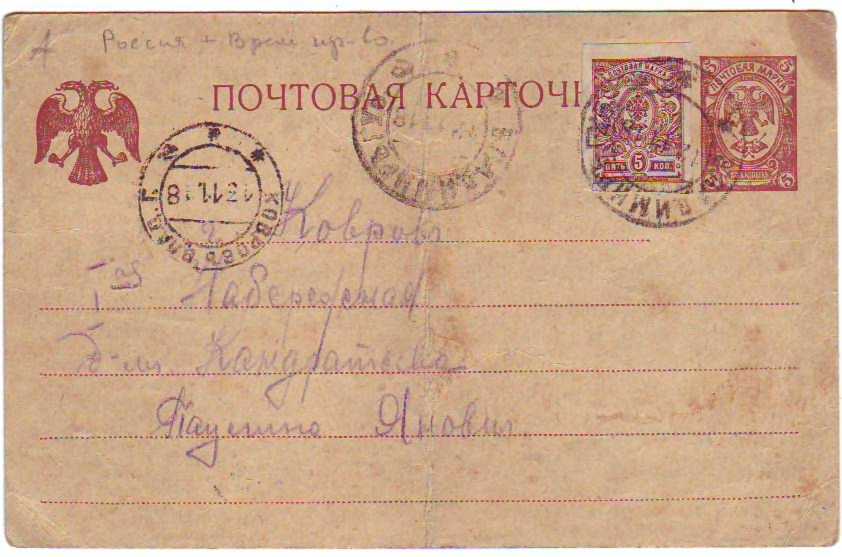 А Россия + Врем пр-во.
ПОЧТОВАЯ КАРТОЧК
ПОЧТОВАЯ МАРКА
5 ПЯТЬ 5 КОП.
5 ПОЧТОВАЯ МАРКА 5
5 5
ВЛАДИМИРЪ
КОВРОВЪ ВЛАД. Г.
13 11 18
г. Ковровъ
Набережная
Д-мъ Кандратьева
Паулина Янович